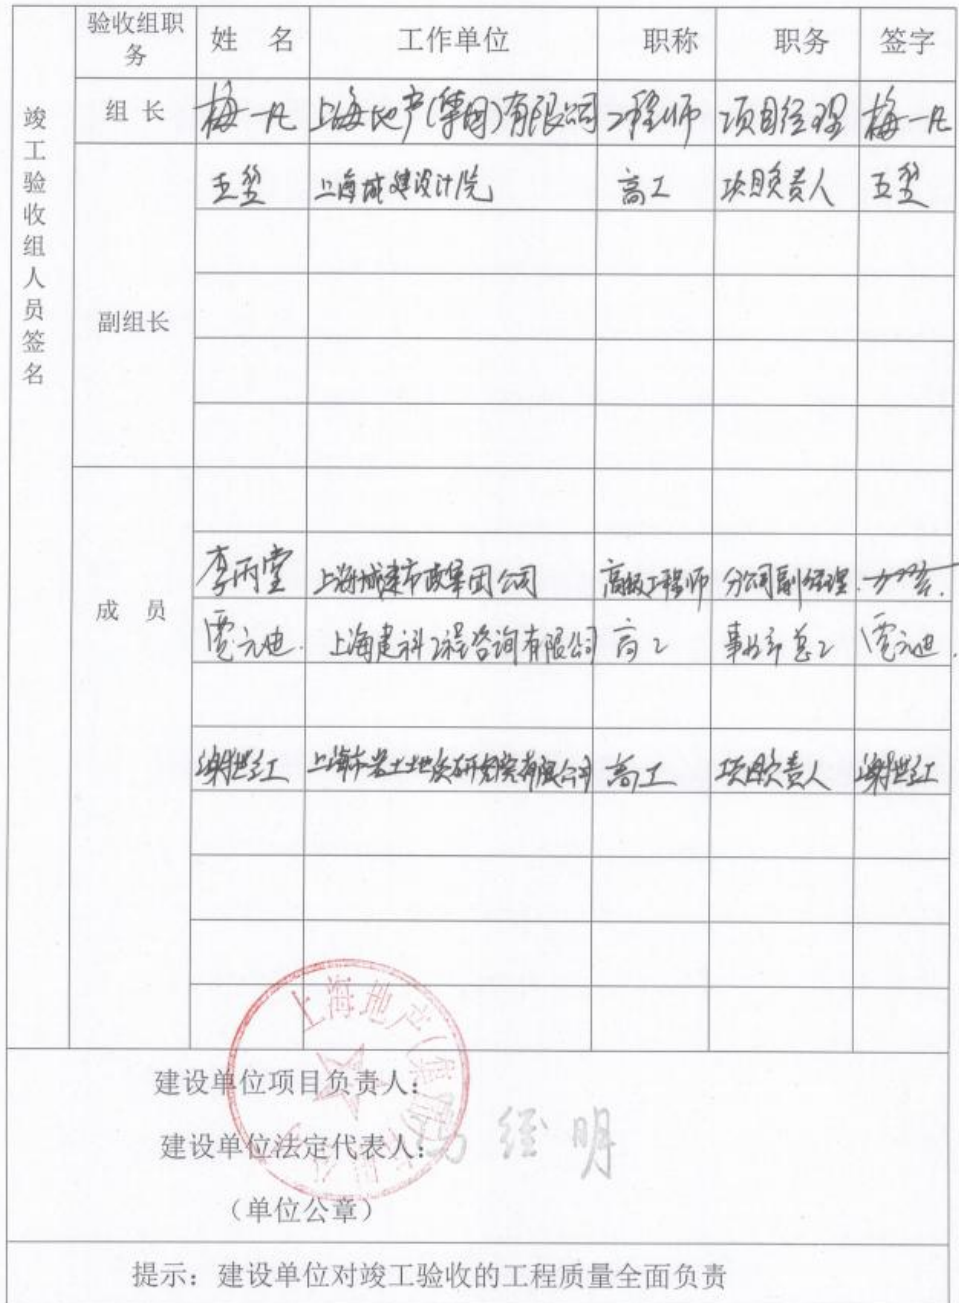 验收组职务 姓 名 工作单位 职称 职务 签字
竣工验收组人员签名
组 长 梅一凡 上海地产(集团)有限公司 工程师 项目经理 梅一凡
副组长
王 上海城建设计院 高工 项目负责人 王
成 员
李雨堂 上海城建市政集团公司 高级工程师 分公司副经理
贾元迪 上海建科工程咨询有限公司 高工 事业部总工 贾元迪
谢世红 上海市岩土地质研究院有限公司 高工 项目负责人 谢世红
上海地产(集团)有限公司
建设单位项目负责人:
建设单位法定代表人: 冯经明
(单位公章)
提示:建设单位对竣工验收的工程质量全面负责